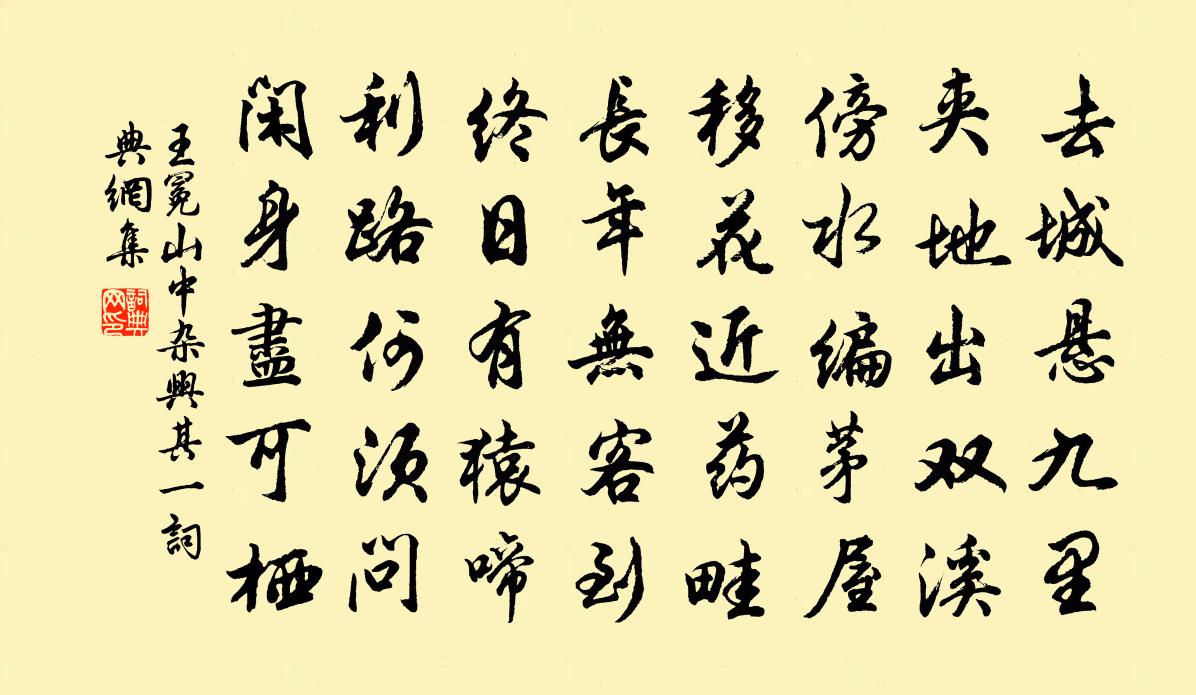 去城悬九里
夹地出双溪
傍水编茅屋
移花近药畦
長年無客到
终日有猿啼
利路何须问
闲身盡可栖
王冕山中杂興其一詞
典網集
詞典
网印